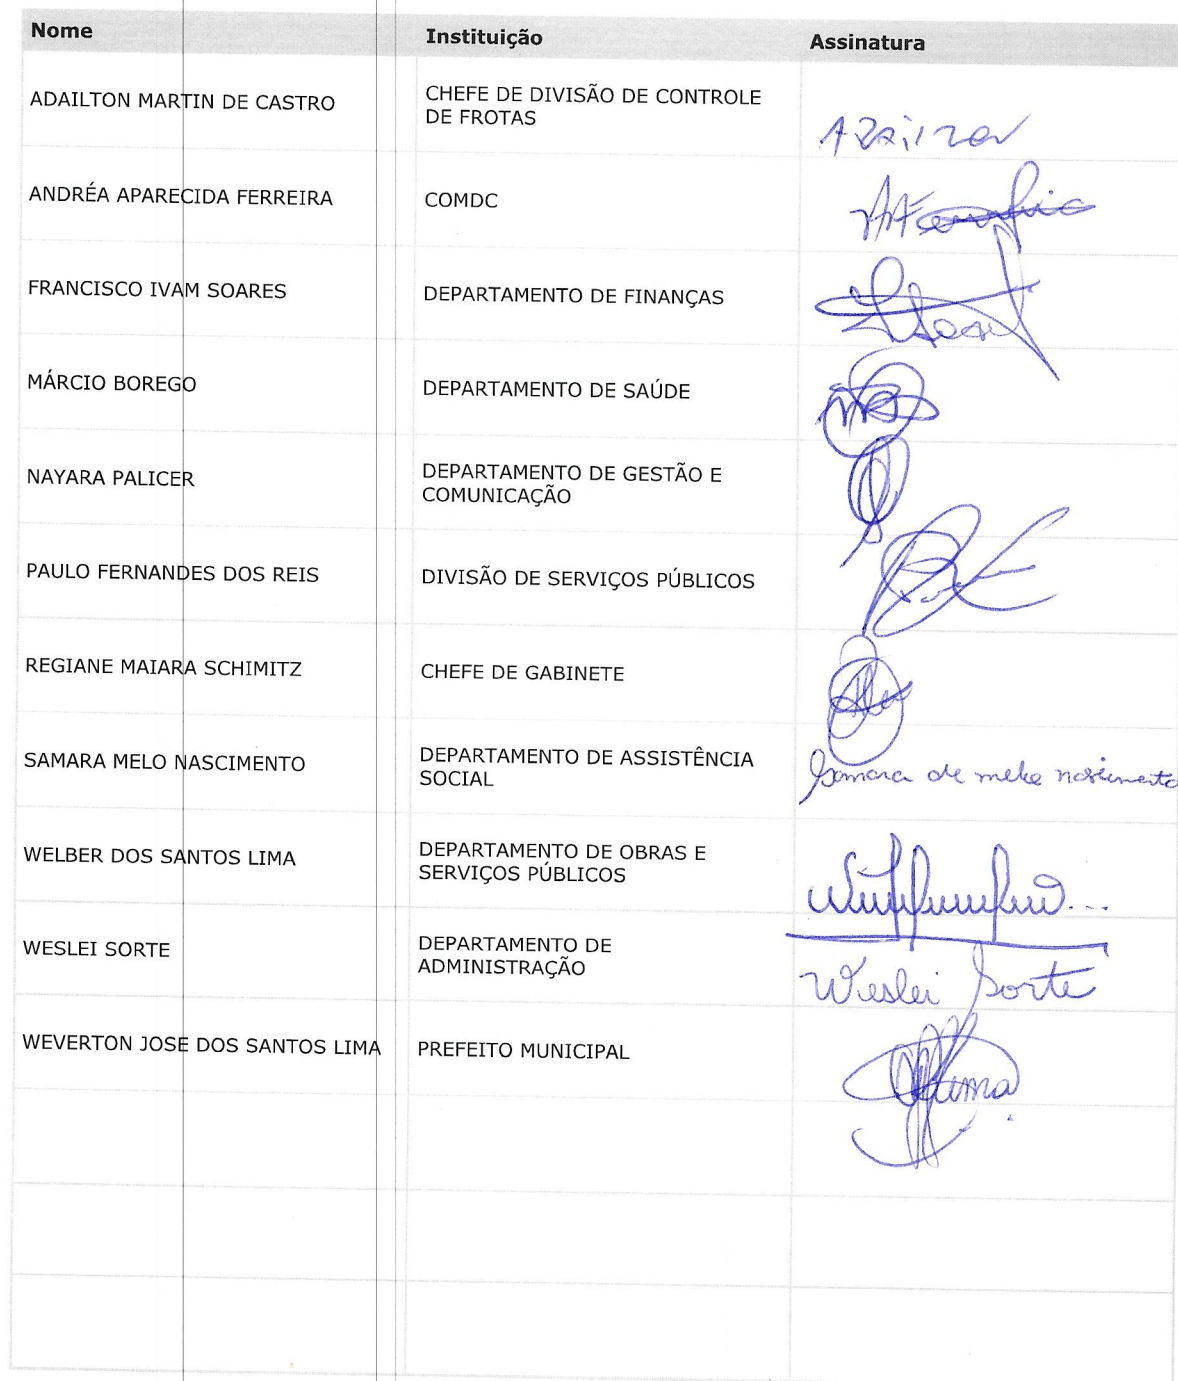 Nome Instituição Assinatura
ADAILTON MARTIN DE CASTRO CHEFE DE DIVISÃO DE CONTROLE
DE FROTAS
ANDRÉA APARECIDA FERREIRA COMDC
FRANCISCO IVAM SOARES DEPARTAMENTO DE FINANÇAS
MÁRCIO BOREGO DEPARTAMENTO DE SAÚDE
NAYARA PALICER DEPARTAMENTO DE GESTÃO E
COMUNICAÇÃO
PAULO FERNANDES DOS REIS DIVISÃO DE SERVIÇOS PÚBLICOS
REGIANE MAIARA SCHIMITZ CHEFE DE GABINETE
SAMARA MELO NASCIMENTO DEPARTAMENTO DE ASSISTÊNCIA
SOCIAL
Samara de melo nascimento
WELBER DOS SANTOS LIMA DEPARTAMENTO DE OBRAS E
SERVIÇOS PÚBLICOS
WESLEI SORTE DEPARTAMENTO DE
ADMINISTRAÇÃO
Weslei Sorte
WEVERTON JOSE DOS SANTOS LIMA PREFEITO MUNICIPAL